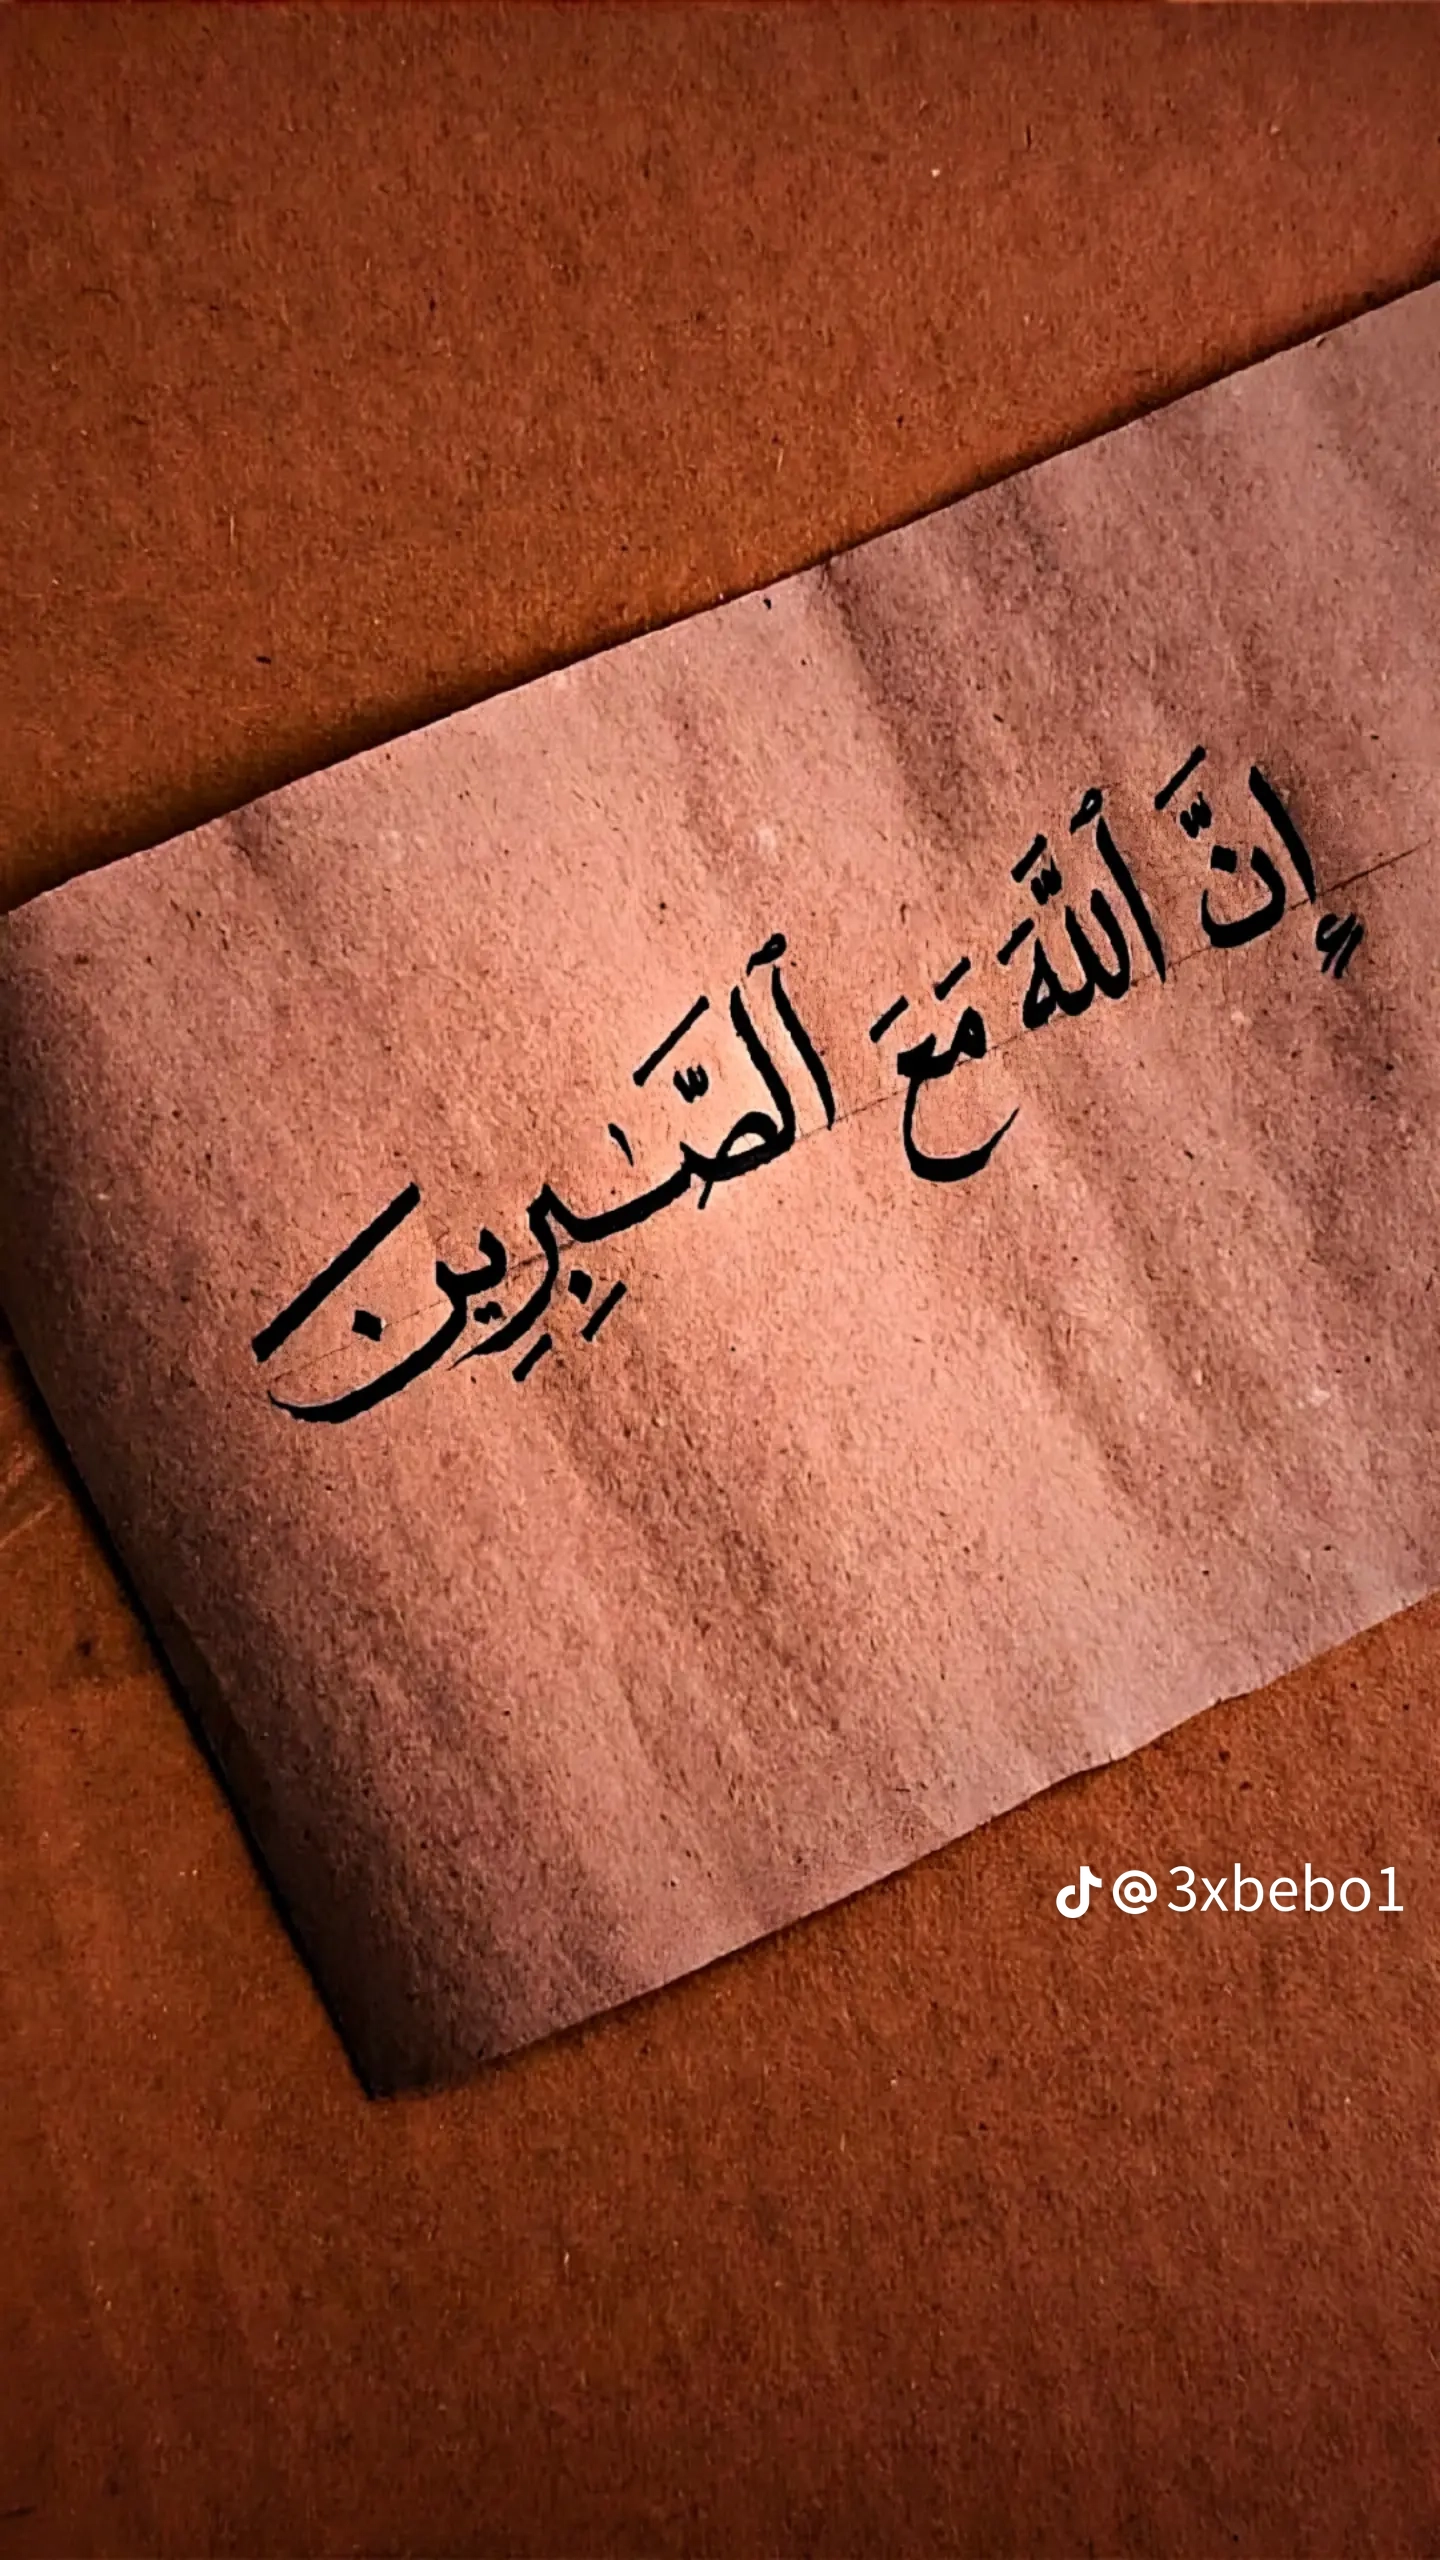 إِنَّ ٱللَّهَ مَعَ ٱلصَّٰبِرِينَ
@3xbebo1